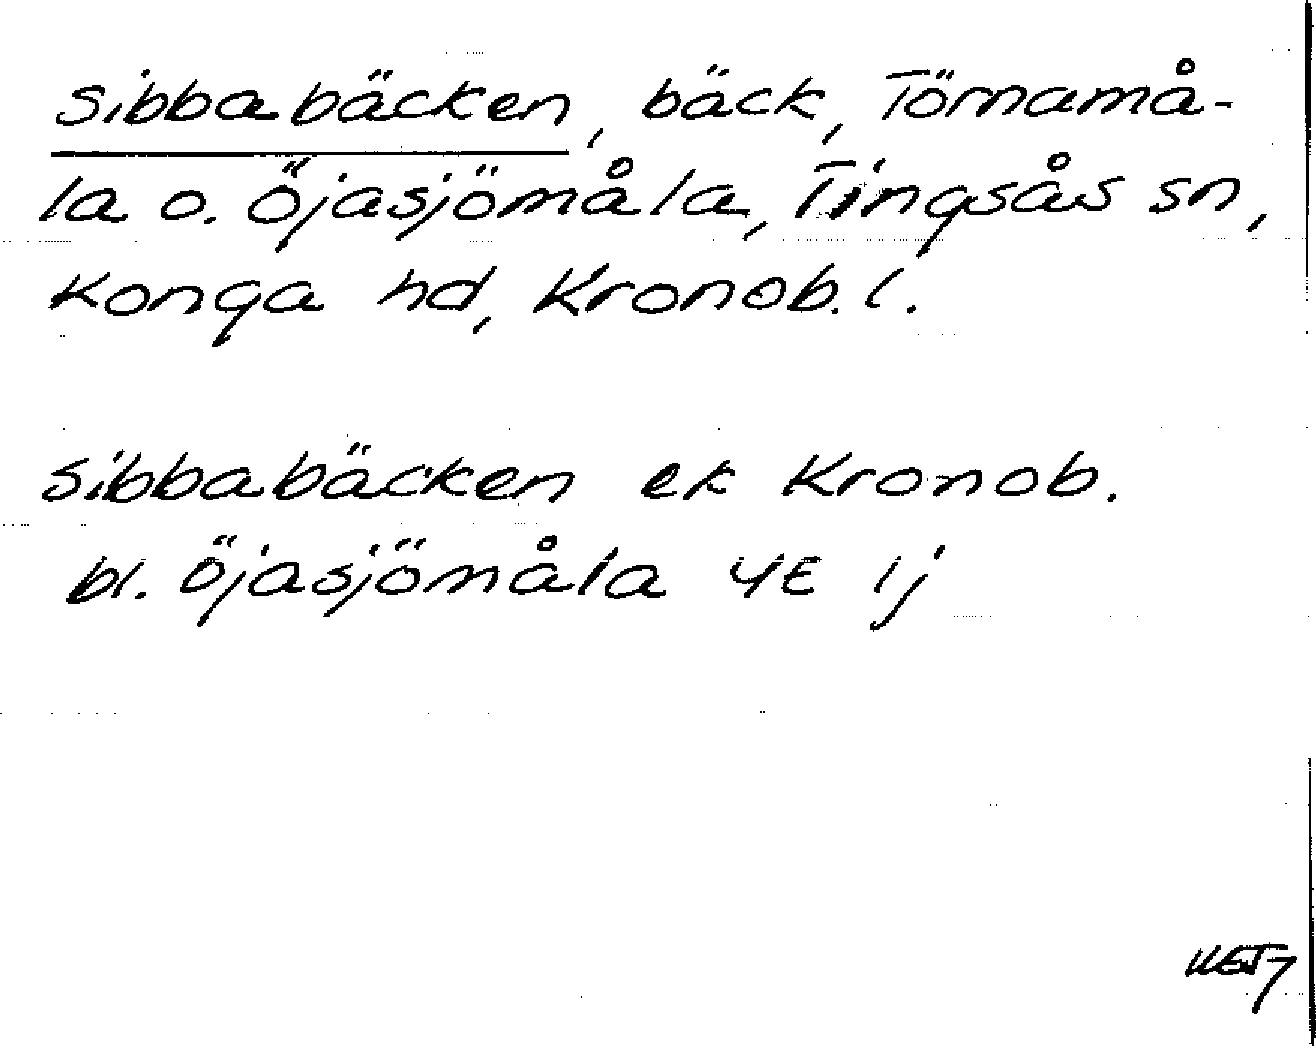 Sibbabäcken, bäck, Törnamå-
la o. Öjasjömåla, Tingsås sn,
Konga hd, Kronob. l.
Sibbabäcken ek Kronob.
bl. Öjasjömåla 4E 1j